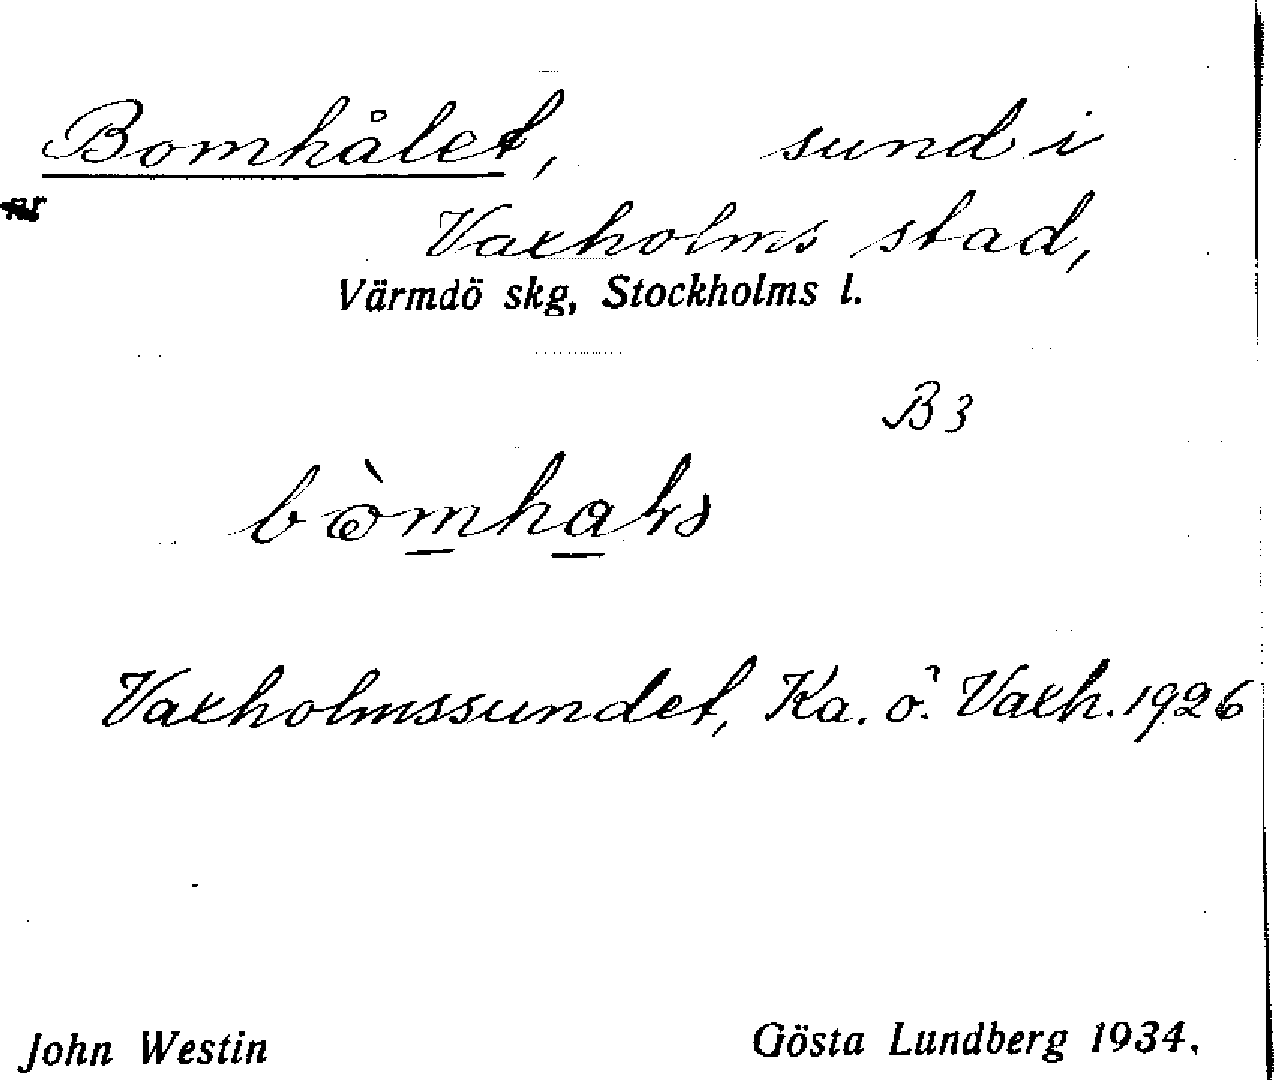 Bomhålet, sund i
Vaxholms stad,
Värmdö skg, Stockholms l.
B 3
Vaxholmssundet, Ka. ö. Vaxh. 1926
John Westin Gösta Lundberg 1934.